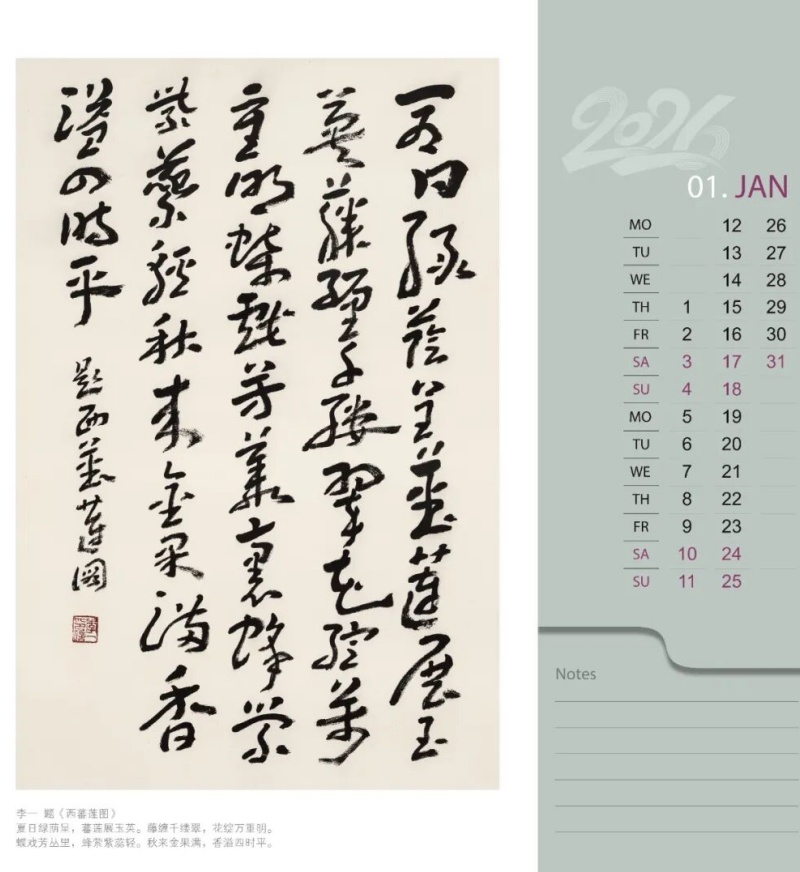 夏日綠蔭呈蕃蓮展玉
英藤纏千縷翠花綻萬
重明蝶戲芳叢裏蜂縈
紫蕊輕秋來金果滿香
溢四時平
題西蕃蓮圖
李一 题《西蕃莲图》
夏日绿荫呈，蕃莲展玉英。藤缠千缕翠，花绽万重明。
蝶戏芳丛里，蜂萦紫蕊轻。秋来金果满，香溢四时平。
2026
01. JAN
MO 12 26
TU 13 27
WE 14 28
TH 1 15 29
FR 2 16 30
SA 3 17 31
SU 4 18
MO 5 19
TU 6 20
WE 7 21
TH 8 22
FR 9 23
SA 10 24
SU 11 25
Notes